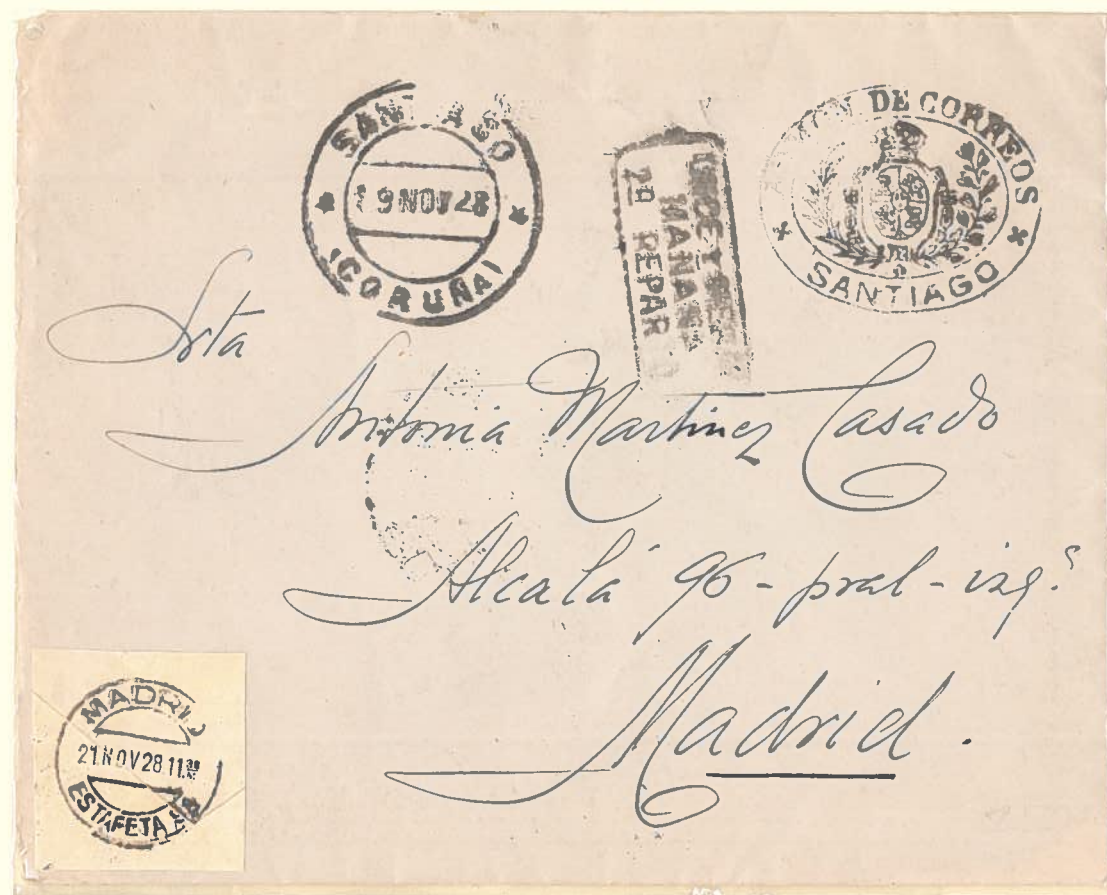 SANTIAGO
19 NOV 28
(CORUÑA)
MAÑANA
2º REPAR
DE CORREOS
SANTIAGO
Srta
Antonia Martinez Casado
Alcalá 96 - pral - izqª
Madrid.
MADRID
21 NOV 28 11
ESTAFETA